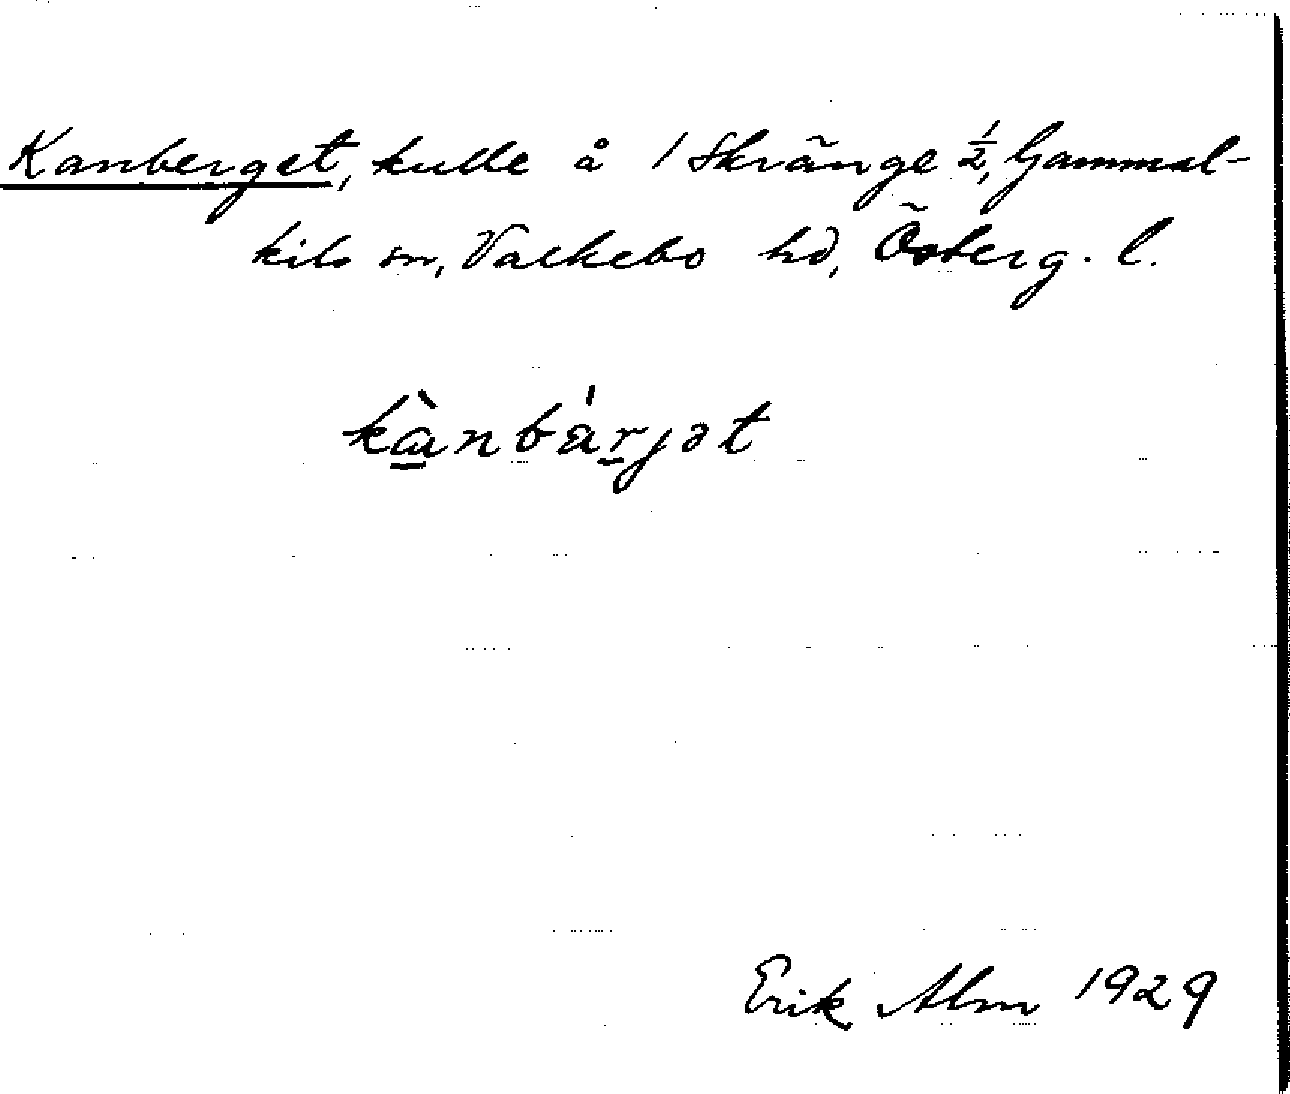 Kanberget, kulle å 1 Skränge ½, Gammal-
kils sn, Valkebo hd, Österg. l.
kànbárjət
Erik Alm 1929